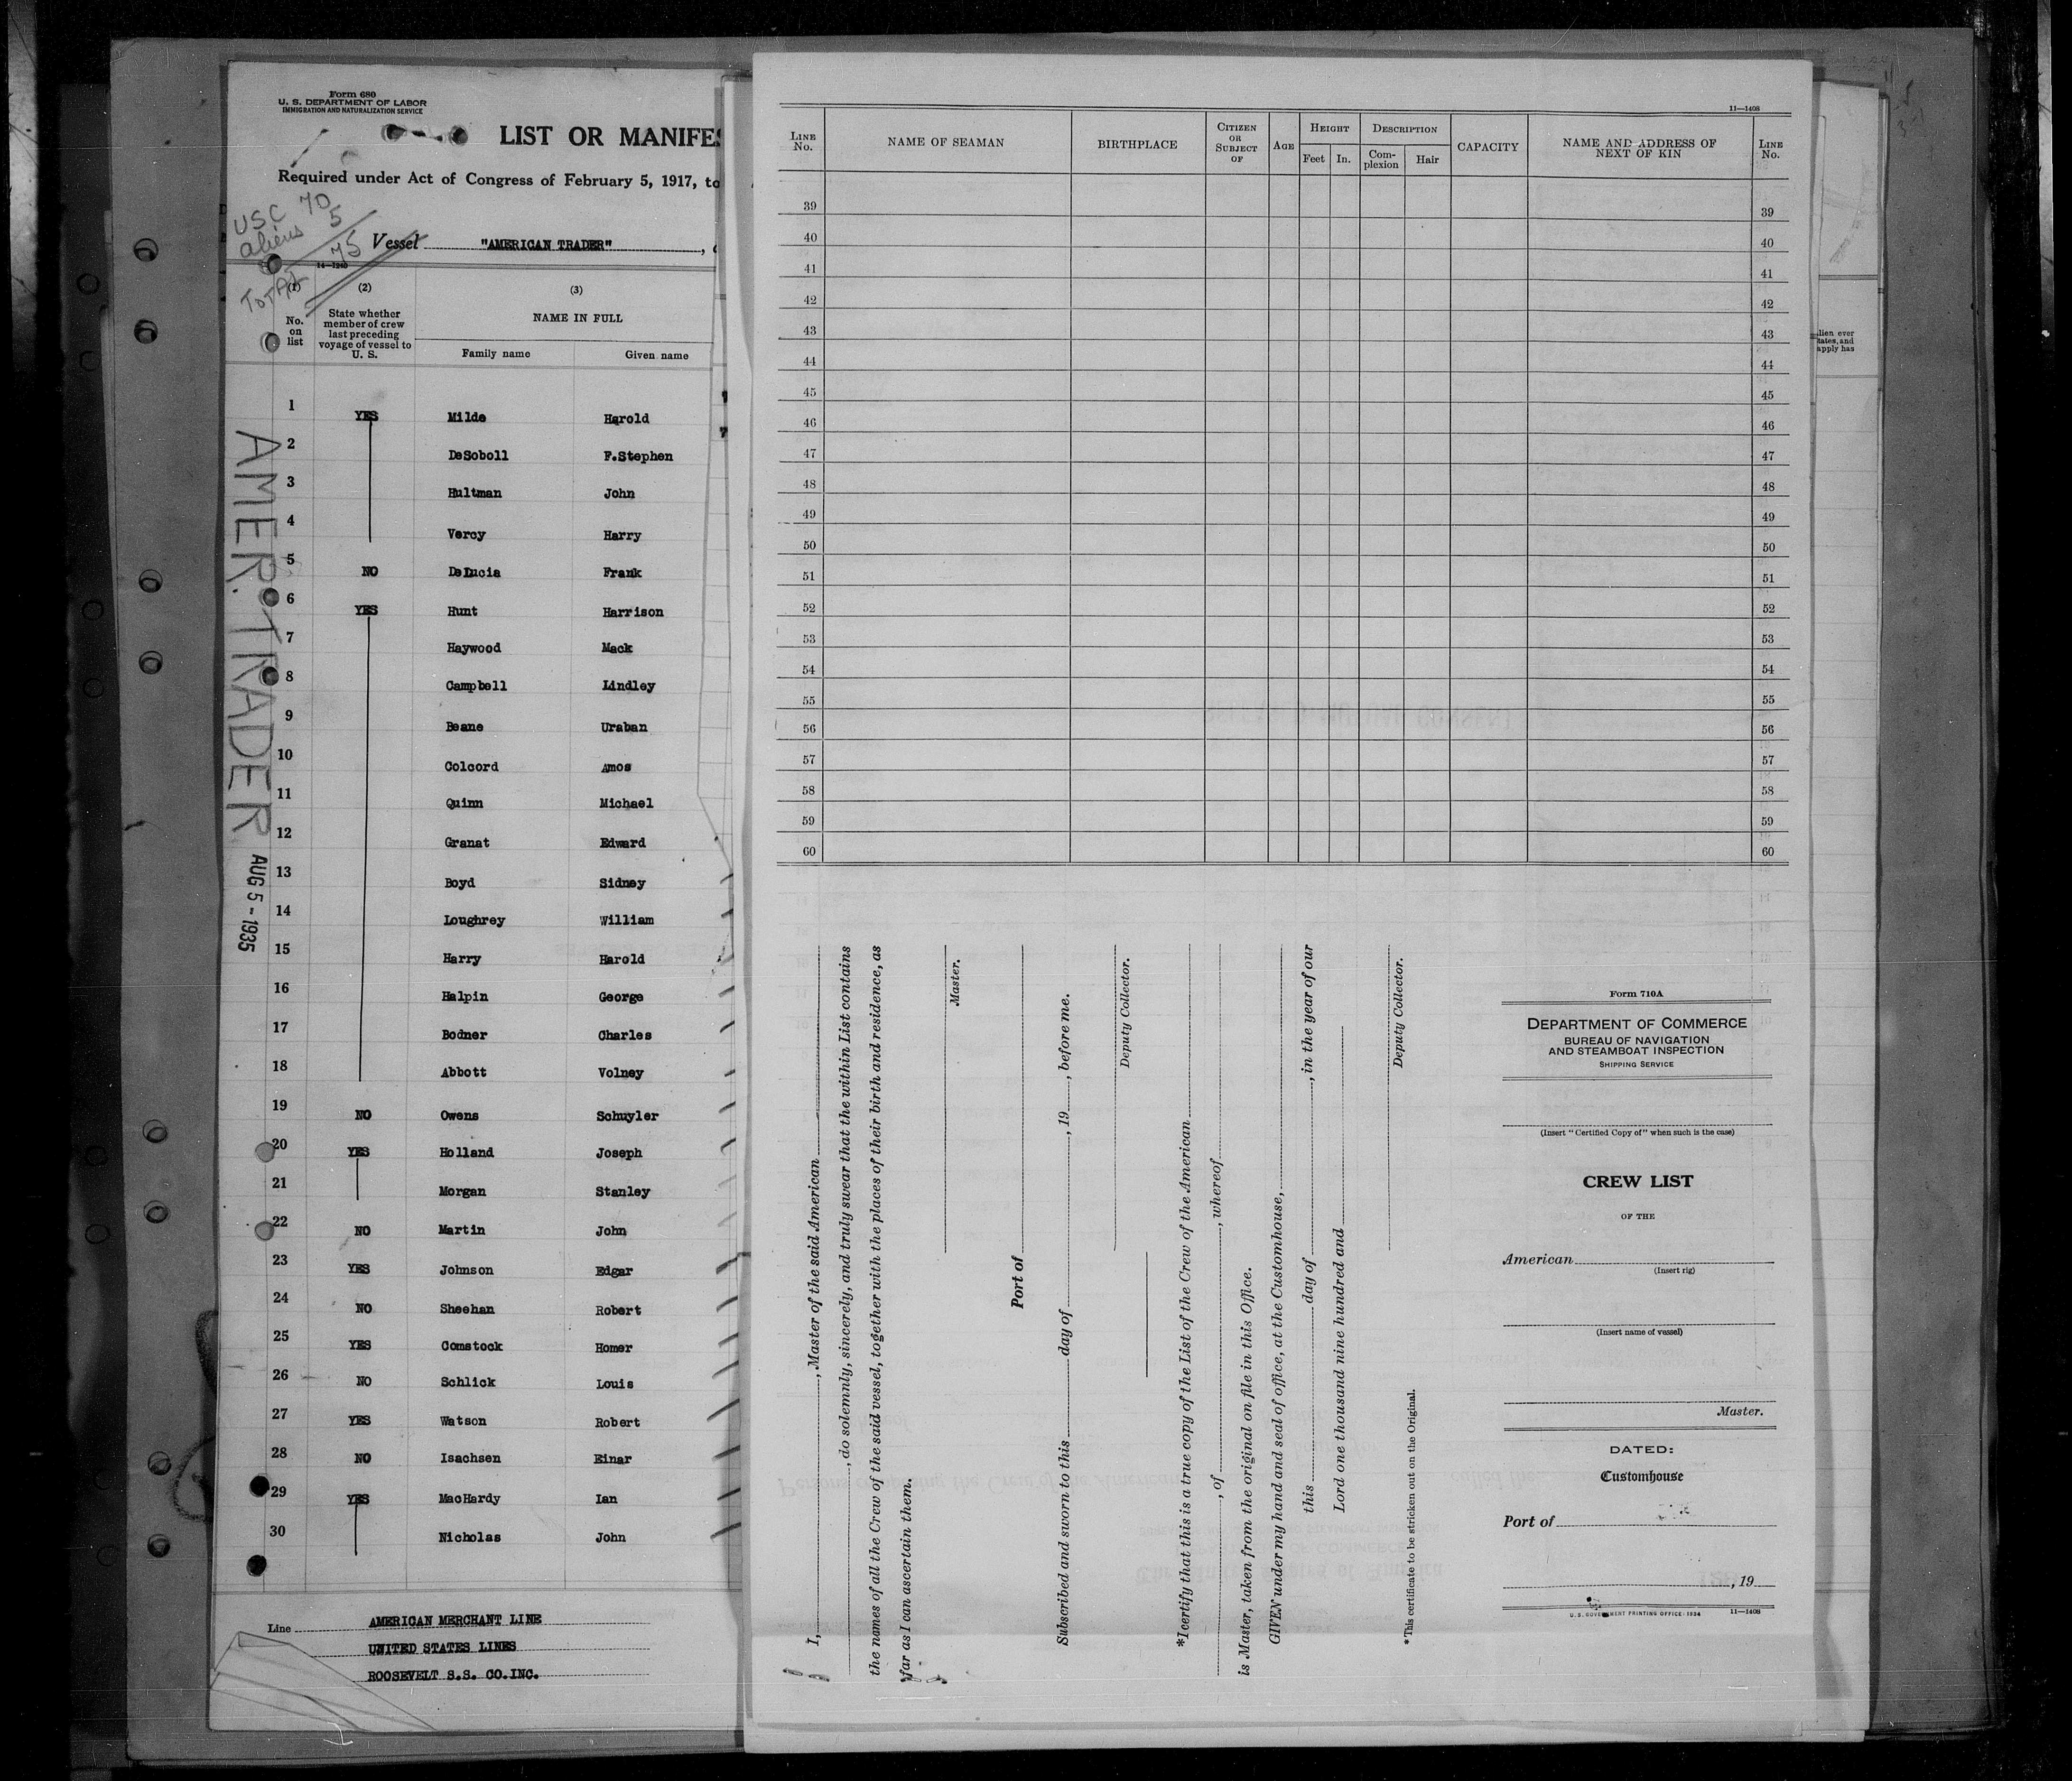 Form 680
U. S. DEPARTMENT OF LABOR
IMMIGRATION AND NATURALIZATION SERVICE
LIST OR MANIFES
Required under Act of Congress of February 5, 1917, to
USC 70
aliens 5
Total 75
Vessel "AMERICAN TRADER" ,
14—1240
(1) (2) (3)
No. on list
State whether member of crew last preceding voyage of vessel to U. S.
NAME IN FULL
Family name Given name
1 YES Milde Harold
2 DeSoboll F.Stephen
3 Hultman John
4 Vercy Harry
5 NO DeLucia Frank
6 YES Hunt Harrison
7 Haywood Mack
8 Campbell Lindley
9 Beane Uraban
10 Colcord Amos
11 Quinn Michael
12 Granat Edward
13 Boyd Sidney
14 Loughrey William
15 Harry Harold
16 Halpin George
17 Bodner Charles
18 Abbott Volney
19 NO Owens Schuyler
20 YES Holland Joseph
21 Morgan Stanley
22 NO Martin John
23 YES Johnson Edgar
24 NO Sheehan Robert
25 YES Comstock Homer
26 NO Schlick Louis
27 YES Watson Robert
28 NO Isachsen Einar
29 YES MacHardy Ian
30 Nicholas John
Line AMERICAN MERCHANT LINE
UNITED STATES LINES
ROOSEVELT S.S. CO.INC.
AMER. TRADER
AUG 5 - 1935
11—1408
LINE No. NAME OF SEAMAN BIRTHPLACE CITIZEN OR SUBJECT OF AGE HEIGHT DESCRIPTION CAPACITY NAME AND ADDRESS OF NEXT OF KIN LINE No.
Feet In. Complexion Hair
39 39
40 40
41 41
42 42
43 43
44 44
45 45
46 46
47 47
48 48
49 49
50 50
51 51
52 52
53 53
54 54
55 55
56 56
57 57
58 58
59 59
60 60
I, , Master of the said American
, do solemnly, sincerely, and truly swear that the within List contains
the names of all the Crew of the said vessel, together with the places of their birth and residence, as
far as I can ascertain them.
Master.
Port of
Subscribed and sworn to this day of , 19 , before me.
Deputy Collector.
*I certify that this is a true copy of the List of the Crew of the American
, of , whereof
is Master, taken from the original on file in this Office.
GIVEN under my hand and seal of office, at the Customhouse,
this day of , in the year of our
Lord one thousand nine hundred and
Deputy Collector.
* This certificate to be stricken out on the Original.
Form 710A
DEPARTMENT OF COMMERCE
BUREAU OF NAVIGATION
AND STEAMBOAT INSPECTION
SHIPPING SERVICE
(Insert "Certified Copy of" when such is the case)
CREW LIST
OF THE
American
(Insert rig)
(Insert name of vessel)
Master.
DATED:
Customhouse
Port of
, 19
U. S. GOVERNMENT PRINTING OFFICE: 1934 11—1408
lien ever
tates, and
apply has